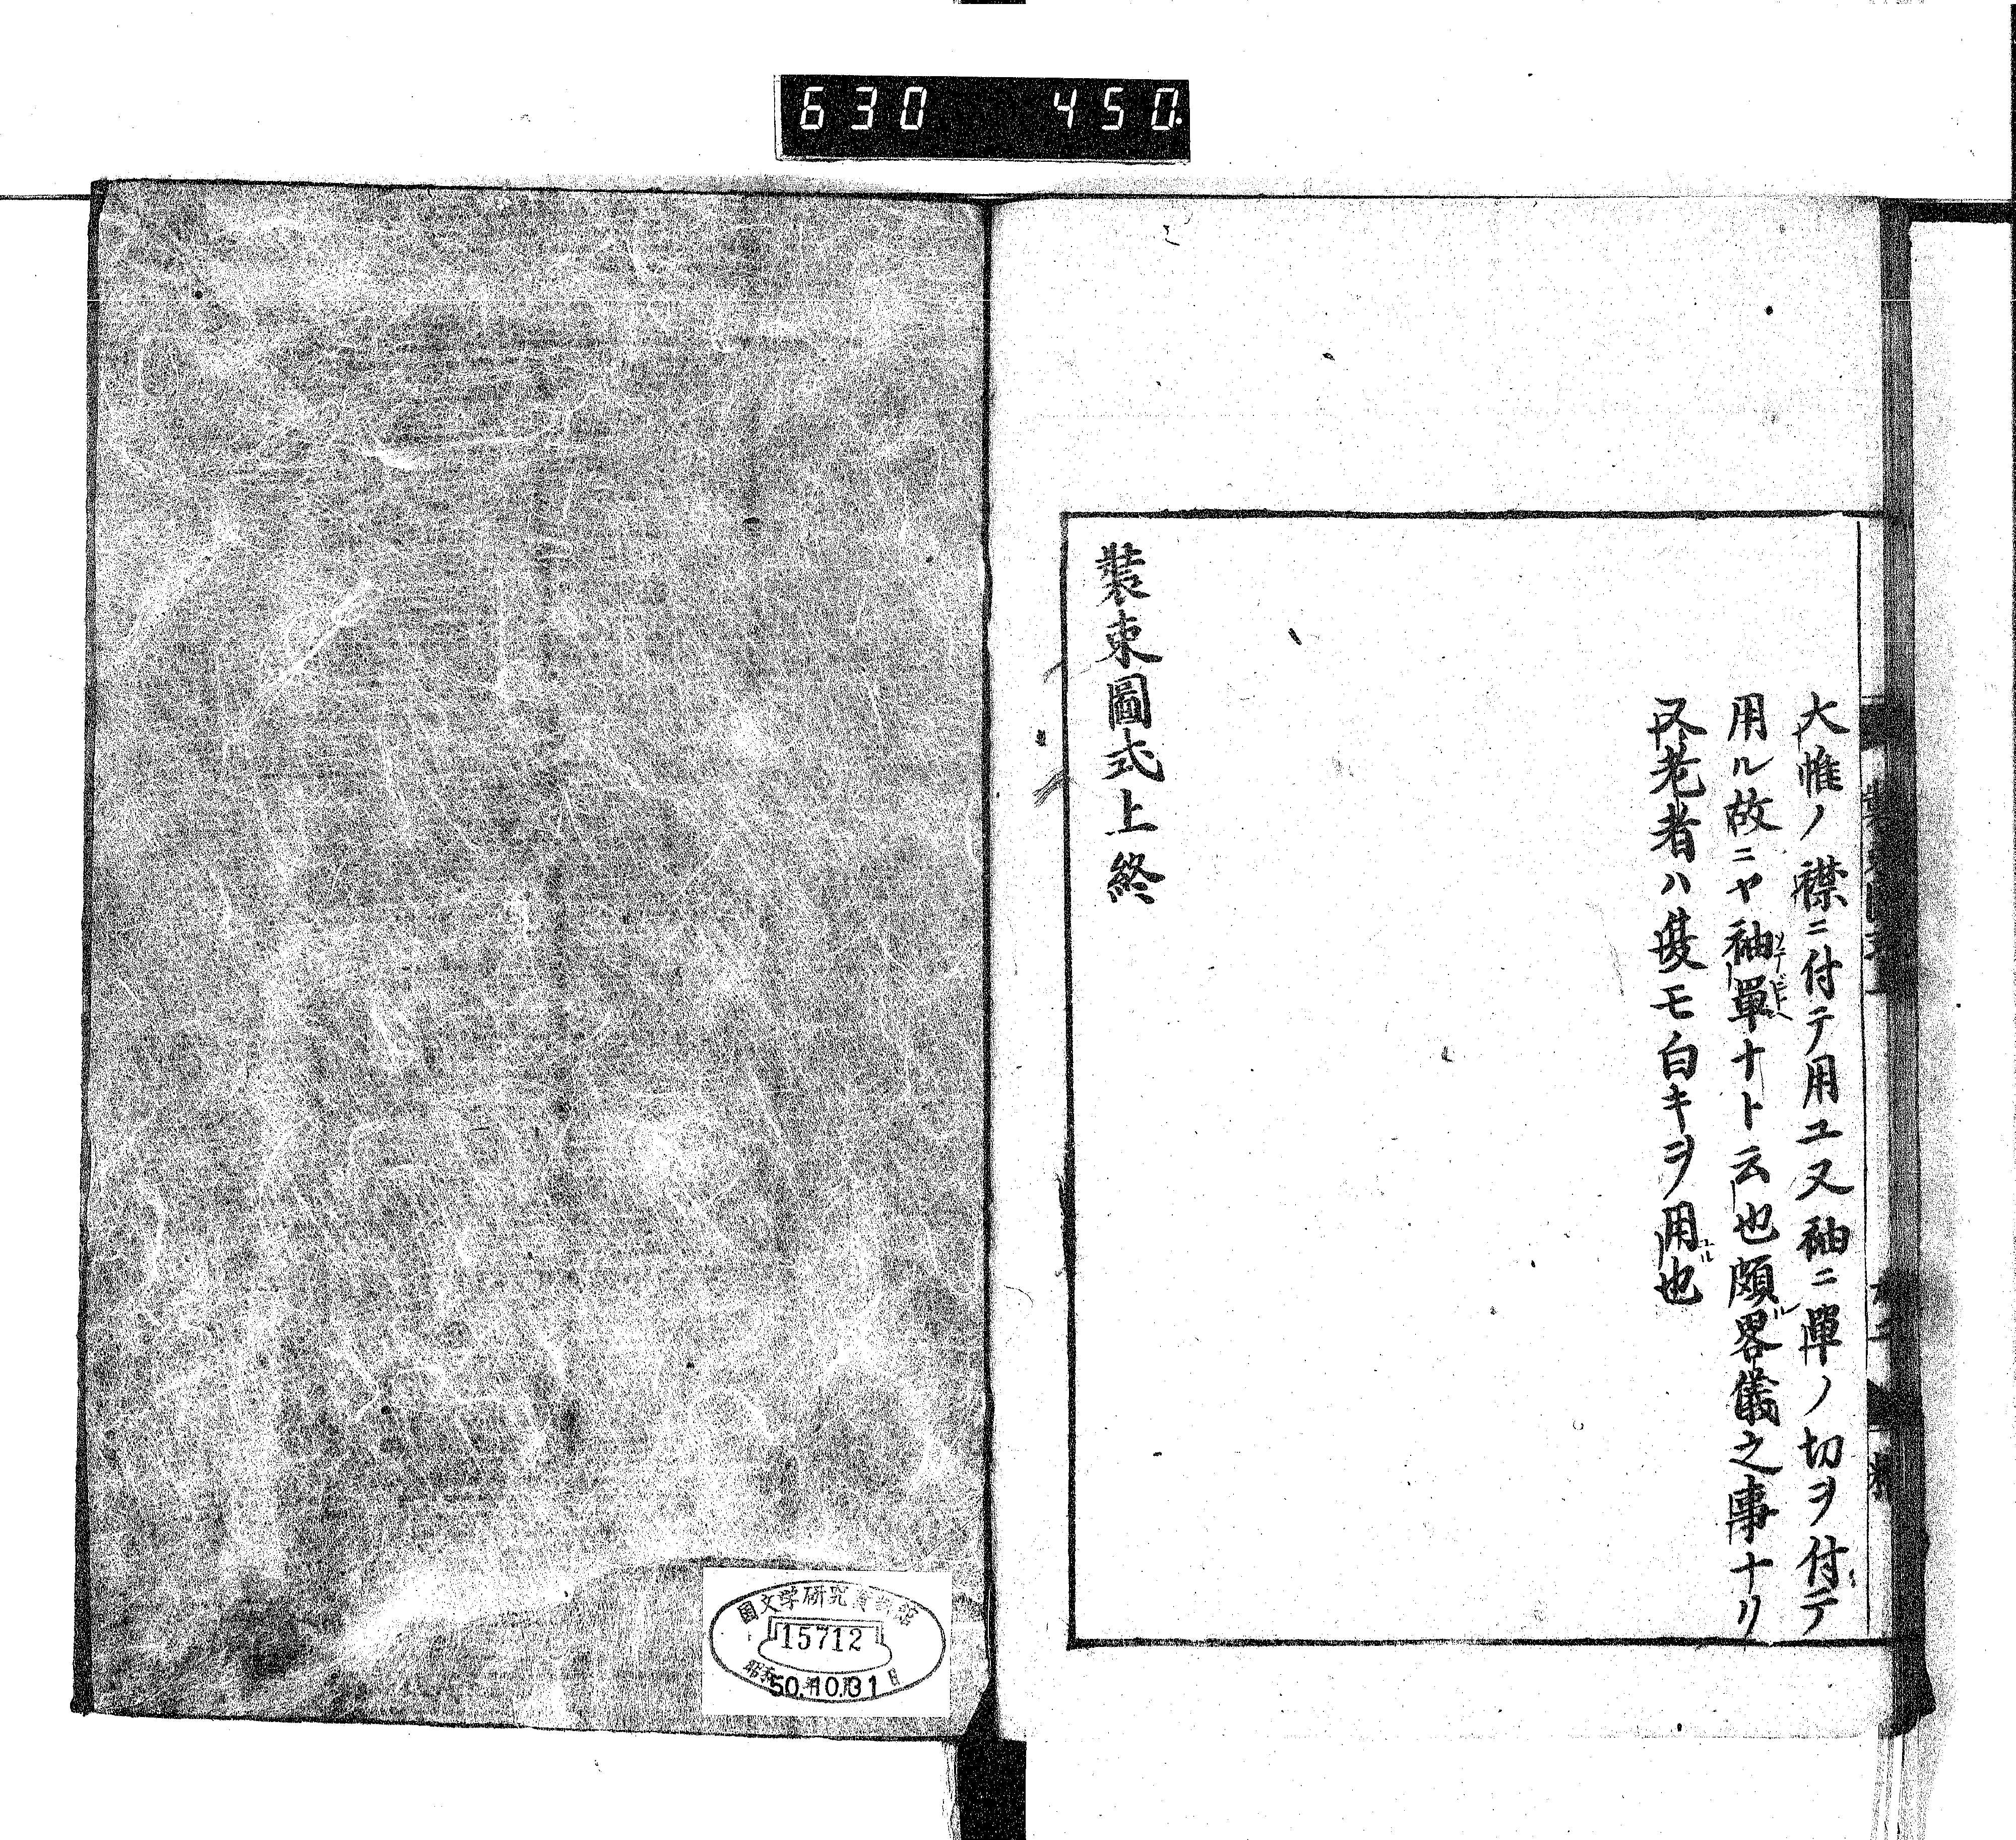 630 450
大帷ノ襟ニ付テ用ユ又袖ニ單ノ切ヲ付テ
用ル故ニヤ袖單ナト云也頗ル畧儀之事ナリ
又老者ハ襪モ白キヲ用ユル也
裝束圖式上終
国文学研究資料館
15712
昭和
50.10.31